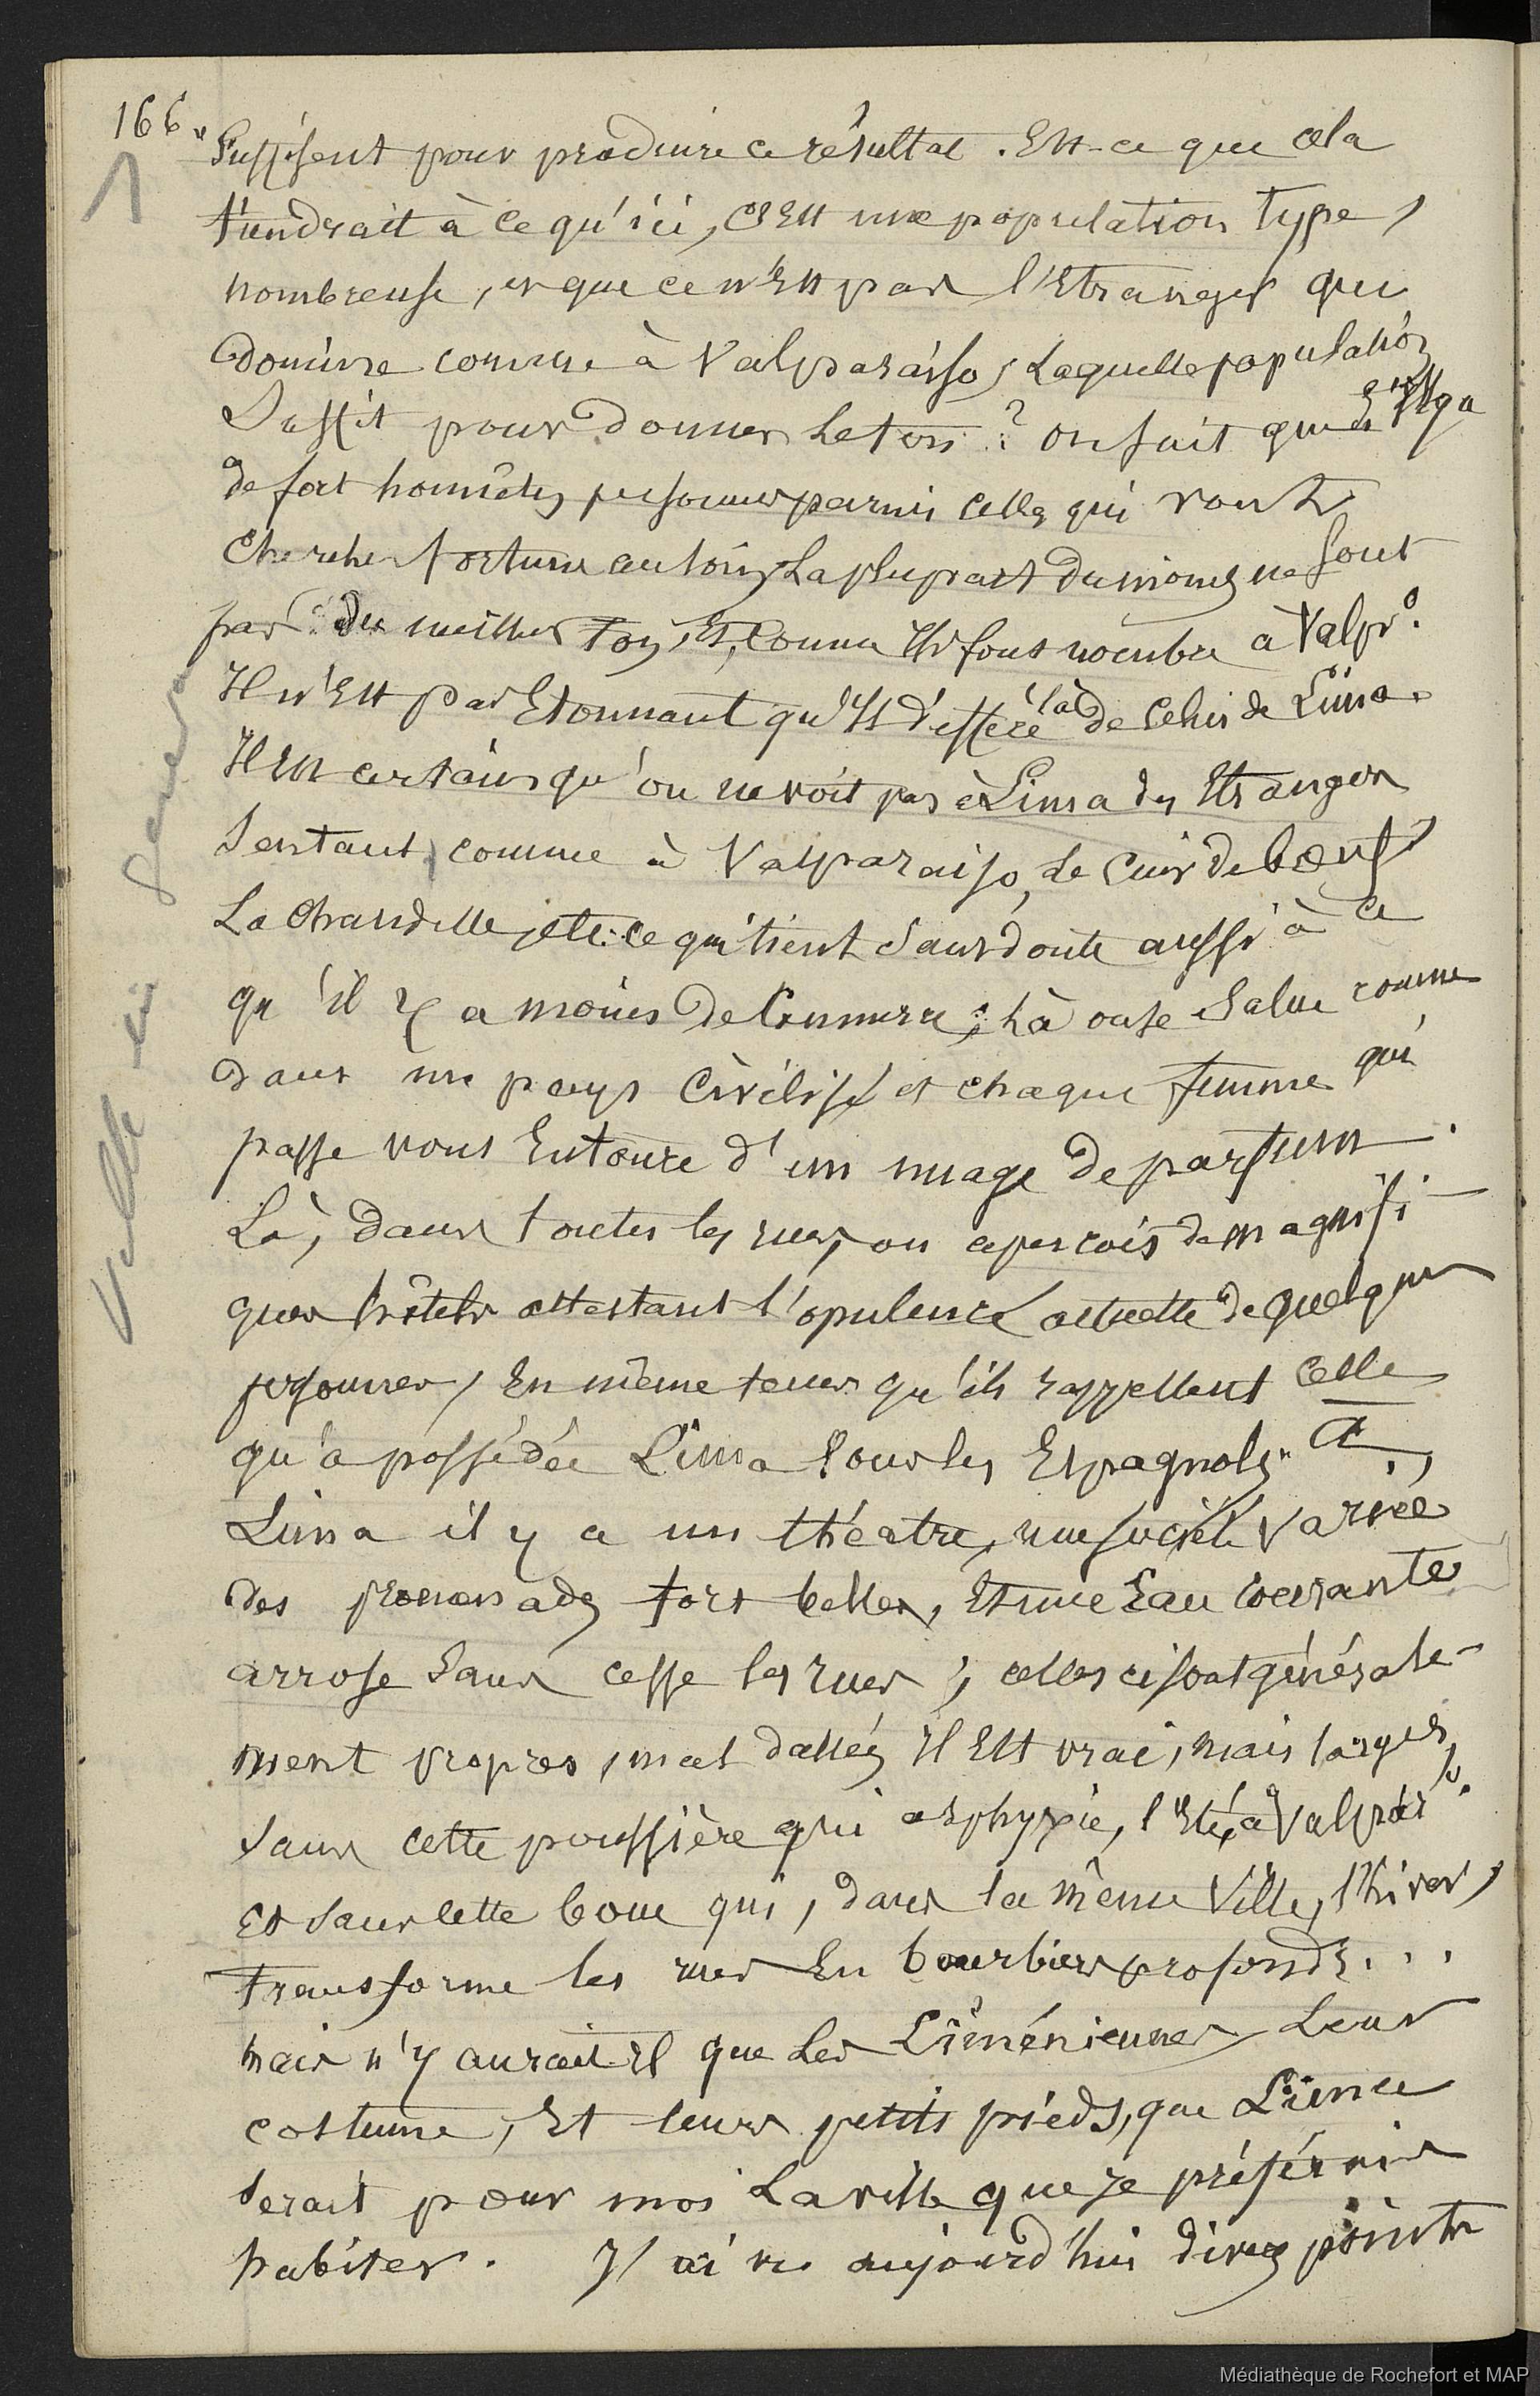 166
1
"Suffisent pour produire ce résultat. Est-ce que cela
tiendrait à ce qu'ici, c'Est une population type,
nombreuse, et que ce n'Est pas l'Etranger qui
domine comme à Valparaiso, Laquelle population
Suffit pour donner le ton ? on sait qu'il y a
de fort honnêtes personnes parmi celles qui vont
chercher fortune au loin, La plupart du moins ne sont
pas du meilleur ton, Et, comme Ils sont nombre à Valpo.
Il n'Est pas Etonnant qu'Il diffère là de Celui de Lima.
Il Est certain qu'on ne voit pas à Lima des Etrangers
Sentant, comme à Valparaiso, Le Cuir de boeuf,
La Chandelle, etc: Ce qui tient Sans doute aussi à ce
qu'il y a moins de Commerce ; Là on se Salue comme
dans un pays Civilisé et chaque femme qui
passe vous Entoure d'un nuage de parfum.
Là, dans toutes les rues, on aperçois de magnifi-
ques hôtels attestant l'opulence actuelle de quelques
personnes, En même tems qu'ils rappellent Celle
qu'a possédée Lima Sous les Espagnols." A
Lima il y a un théatre, une société variée
des promenades fort belles, Et une Eau courante
arrose Sans cesse les rues ; celles ci sont générale-
ment propres, mal dallées Il Est vrai, mais larges,
Sans cette poussière qui asphyxie, l'Eté, à Valparso.
Et Sans cette boue qui, dans la même Ville, l'hiver,
transforme les rues En bourbiers profonds...
mais n'y aurait-Il que Les Liméniennes, Leur
costume, Et leurs petits pieds, que Lima
Serait pour moi La ville que Je préférerais
habiter. J'ai vu aujourd'hui divers points
Veille